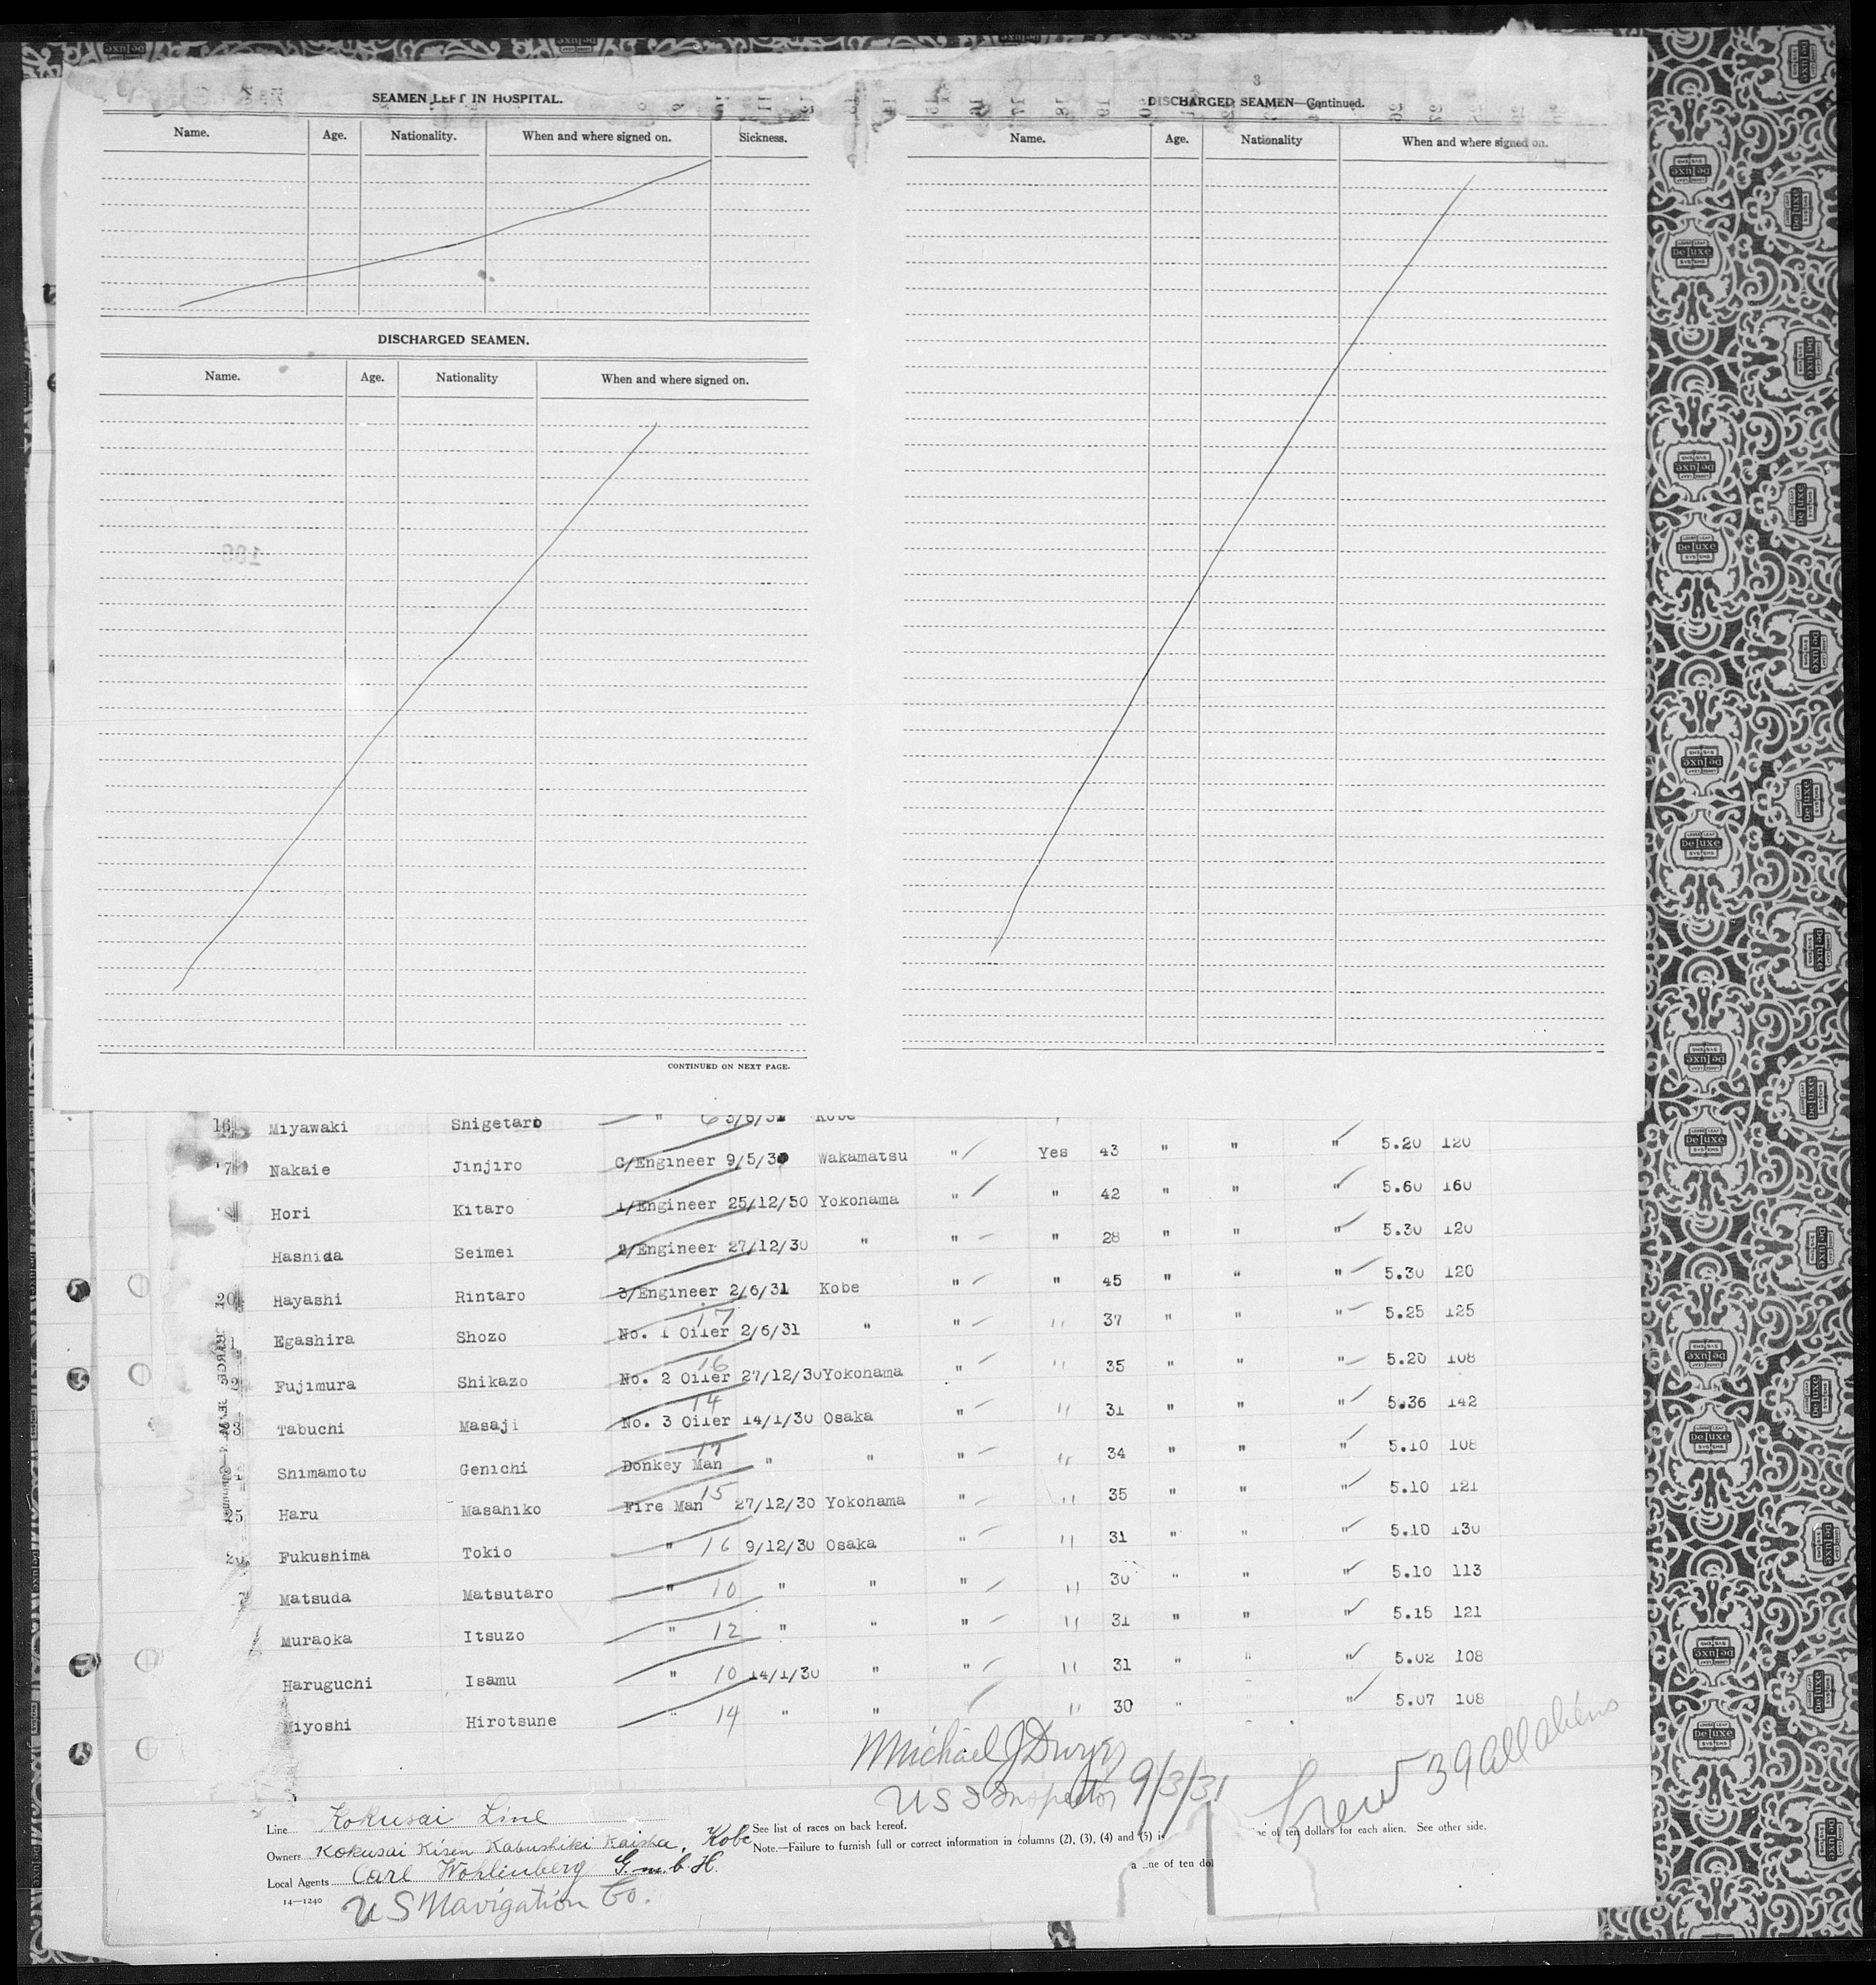 3
SEAMEN LEFT IN HOSPITAL.
Name. Age. Nationality. When and where signed on. Sickness.
DISCHARGED SEAMEN.
Name. Age. Nationality When and where signed on.
CONTINUED ON NEXT PAGE.
DISCHARGED SEAMEN—Continued.
Name. Age. Nationality When and where signed on.
16 Miyawaki Shigetaro " 6 3/6/31 Kobe
7 Nakaie Jinjiro C/Engineer 9/5/3 Wakamatsu " Yes 43 " " " 5.20 120
Hori Kitaro 1/Engineer 25/12/30 Yokohama " " 42 " " " 5.60 160
Hashida Seimei 2/Engineer 27/12/30 " " " 28 " " " 5.30 120
20 Hayashi Rintaro 3/Engineer 2/6/31 Kobe " " 45 " " " 5.30 120
1 Egashira Shozo No. 1 Oiler 17 2/6/31 " " " 37 " " " 5.25 125
2 Fujimura Shikazo No. 2 Oiler 16 27/12/30 Yokohama " " 35 " " " 5.20 108
3 Tabuchi Masaji No. 3 Oiler 14 14/1/30 Osaka " " 31 " " " 5.36 142
Shimamoto Genichi Donkey Man " " " " 34 " " " 5.10 108
25 Haru Masahiko Fire Man 15 27/12/30 Yokohama " " 35 " " " 5.10 121
Fukushima Tokio " 16 9/12/30 Osaka " " 31 " " " 5.10 130
7 Matsuda Matsutaro " 10 " " " " 30 " " " 5.10 113
Muraoka Itsuzo " 12 " " " " 31 " " " 5.15 121
Haruguchi Isamu " 10 14/1/30 " " " 31 " " " 5.02 108
Miyoshi Hirotsune " 14 " " " 30 " " 5.07 108
Michael J Dwyer
US I Inspector 9/3/31
Crew 39 all aliens
Line Kokusai Line
Owners Kokusai Kisen Kabushiki Kaisha, Kobe
Local Agents Carl Wohlenberg G.m.b.H.
14—1240
US Navigation Co.
See list of races on back hereof.
Note.—Failure to furnish full or correct information in columns (2), (3), (4) and (5) is
of ten dollars for each alien. See other side.
a ne of ten dol